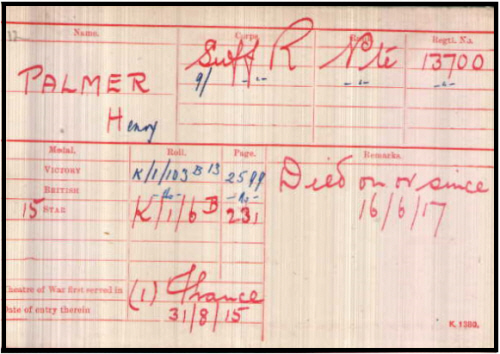 Name. Corps. Rank. Regtl. No.
PALMER Suff R Pte 13700
9/ -"- -"- -"-
Henry
Medal. Roll. Page. Remarks.
VICTORY K/1/103 B 13 2599 Died on or since
BRITISH -do- -do- 16/6/17
15 STAR K/1/6 B 231
Theatre of War first served in (1) France
Date of entry therein 31/8/15
K. 1380.